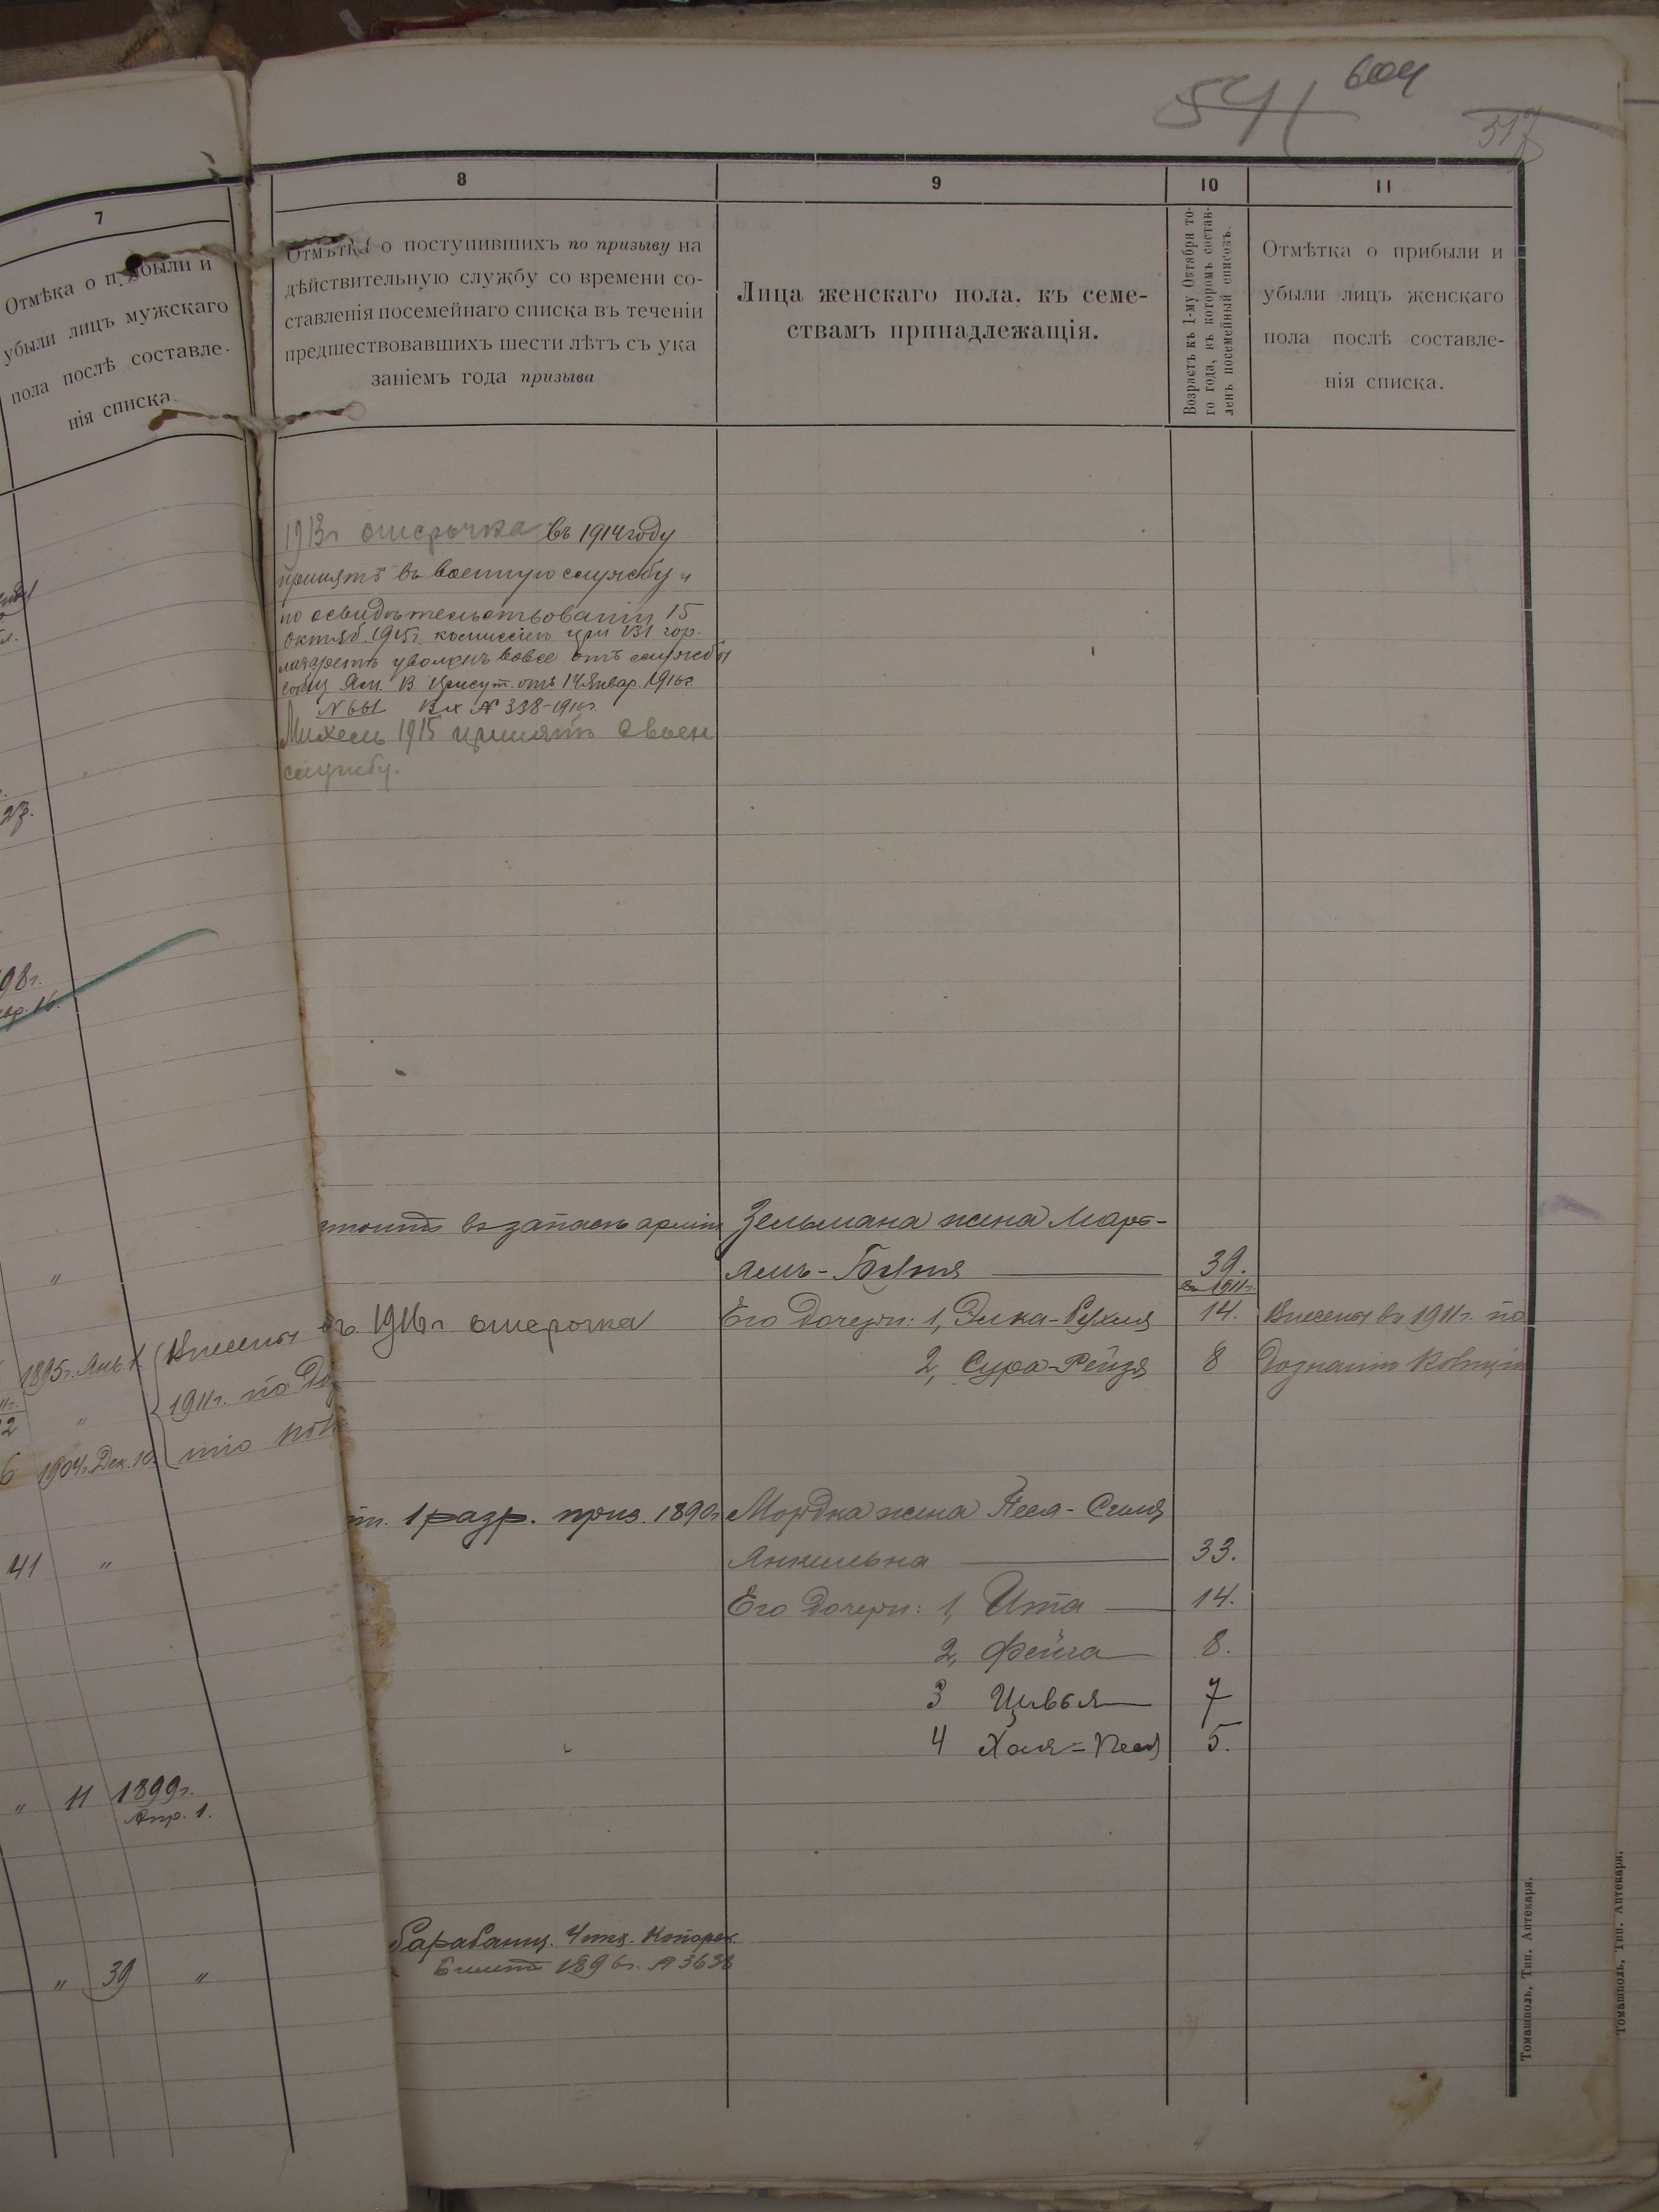 604
541
517
7
Отмѣка о прибыли и
убыли лицъ мужскаго
пола послѣ составле-
нія списка.
8
Отмѣтка о поступившихъ по призыву на
дѣйствительную службу со времени со-
ставленія посемейнаго списка въ теченіи
предшествовавшихъ шести лѣтъ съ ука
заніемъ года призыва
9
Лица женскаго пола, къ семе-
ствамъ принадлежащія.
10
Возрастъ къ 1-му Октября то-
го года, въ которомъ состав-
ленъ посемейный списокъ.
11
Отмѣтка о прибыли и
убыли лицъ женскаго
пола послѣ составле-
нія списка.
1913г отсрочка въ 1914 году
принятъ въ военную службу и
по освидѣтельствованіи 15
Октяб. 1915г. комиссіею при 131 гор.
лазаретѣ уволенъ вовсе отъ службы
Ям. В Присут. отъ 14 Январ. 1916г.
N 661 Вх № 338-1916г.
Михель 1915 принятъ в воен
службу.
27.
98г.
16.
въ запасѣ арміи
Зельмана жена Марь-
ямъ-Бейня 39.
въ 1911г.
въ 1916г отсрочка
Его дочери: 1, Элка-Рухля 14. Внесены въ 1911г. по
2, Сура-Рейзя 8 дознанію
1895г. Янв. 1. Внесены
1911г. по До
1904г. Дек. 10.
1 разр. приз. 1890г
Мордка жена Песя-
Янкильвна 33.
41 "
Его дочери: 1, Ита 14.
2, Фейга 8.
3 Цивья 7
4 Хая- 5.
" 11 1899г.
Апр. 1.
" 39 "
Барабанщ.
Билетъ 1896г. № 3638
Томашполь, Тип. Аптекаря.
Томашполь, Тип. Аптекаря.